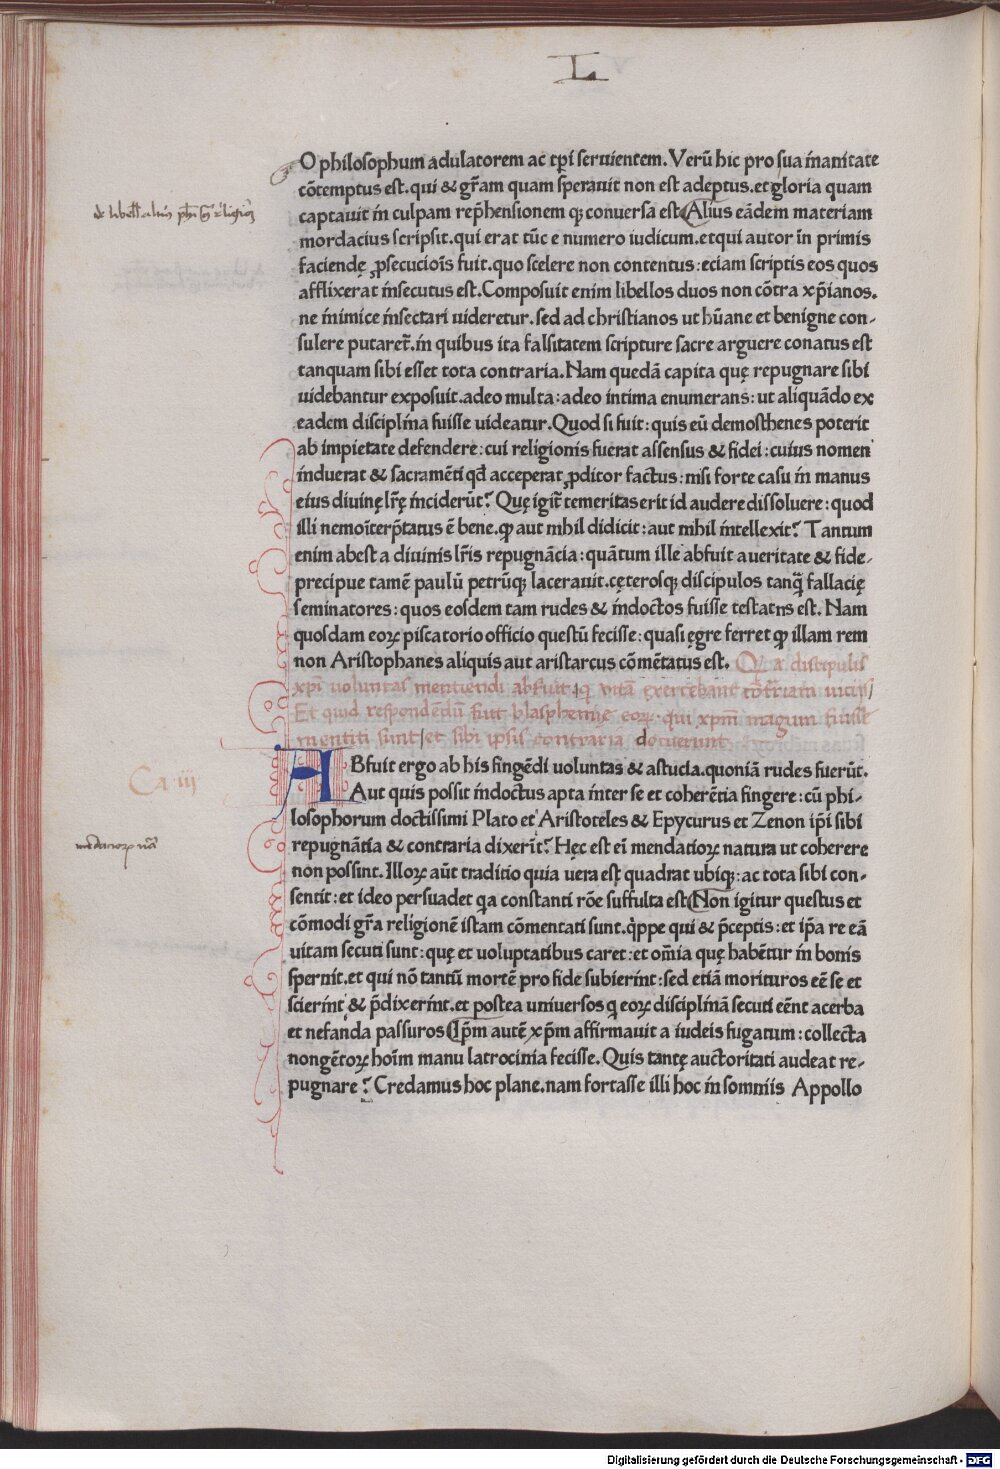 L
O philosophum adulatorem ac tp̄i seruientem. Verū hic pro sua inanitate
cōtemptus est. qui & gr̄am quam sperauit non est adeptus. et gloria quam
captauit in culpam rep̄hensionem qꝫ conuersa est Alius eādem materiam
mordacius scripsit. qui erat tūc e numero iudicum. et qui autor in primis
faciendę ꝓsecucioīs fuit. quo scelere non contentus: eciam scriptis eos quos
afflixerat insecutus est. Composuit enim libellos duos non cōtra xp̄ianos.
ne inimice insectari uideretur. sed ad christianos ut hūane et benigne con-
sulere putaret̄. in quibus ita falsitatem scripture sacre arguere conatus est
tanquam sibi esset tota contraria. Nam quedā capita quę repugnare sibi
uidebantur exposuit. adeo multa: adeo intima enumerans: ut aliquādo ex
eadem disciplina fuisse uideatur. Quod si fuit: quis eū demosthenes poterit
ab impietate defendere: cui religionis fuerat assensus & fidei: cuius nomen
induerat & sacramēti qd̄ acceperat ꝓditor factus: nisi forte casu in manus
eius diuinę lr̄ę inciderūt? Quę igit̄ temeritas erit id audere dissoluere: quod
illi nemo īterp̄tatus ē bene. ꝙ aut nihil didicit: aut nihil intellexit? Tantum
enim abest a diuinis lr̄is repugnācia: quātum ille abfuit a ueritate & fide-
precipue tamē paulū petrūqꝫ lacerauit. cęterosqꝫ discipulos tanq̄ fallacię
seminatores: quos eosdem tam rudes & indoctos fuisse testatns est. Nam
quosdam eoꝝ piscatorio officio questū fecisse: quasi ęgre ferret ꝙ illam rem
non Aristophanes aliquis aut aristarcus cōmētatus est. Qꝫ a discipulis
xp̄i voluntas mentiendi abfuit
Et quid respondēdū fuit blasphemię eoꝝ qui xpm̄ magum fuisse
mentiti sunt et sibi ipsis contraria docuerunt
ABfuit ergo ab his fingēdi uoluntas & astucia. quoniā rudes fuerūt.
Aut quis possit indoctus apta inter se et coherētia fingere: cū phi-
losophorum doctissimi Plato et Aristoteles & Epycurus et Zenon ip̄i sibi
repugnātia & contraria dixerūt? Hęc est eī mendatioꝝ natura ut coherere
non possint. Illoꝝ aūt traditio quia uera est quadrat ubiqꝫ: ac tota sibi con-
sentit: et ideo persuadet qa constanti rōe suffulta est Non igitur questus et
cōmodi gr̄a religionē istam cōmentati sunt. q̄ppe qui & p̄ceptis: et ip̄a re eā
uitam secuti sunt: quę et uoluptatibus caret: et om̄ia quę habētur in bonis
spernit. et qui nō tantū mortē pro fide subierint: sed etiā morituros eē se et
scierint & p̄dixerint. et postea uniuersos q eoꝝ disciplinā secuti eēnt acerba
et nefanda passuros Ip̄m autē xp̄m affirmauit a iudeis fugatum: collecta
nongētoꝝ hoīm manu latrocinia fecisse. Quis tantę auctoritati audeat re-
pugnare? Credamus hoc plane. nam fortasse illi hoc in somniis Appollo
Ca iii
Digitalisierung gefördert durch die Deutsche Forschungsgemeinschaft - DFG